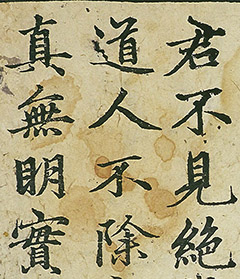 君不見絕
道人不除
真無明實